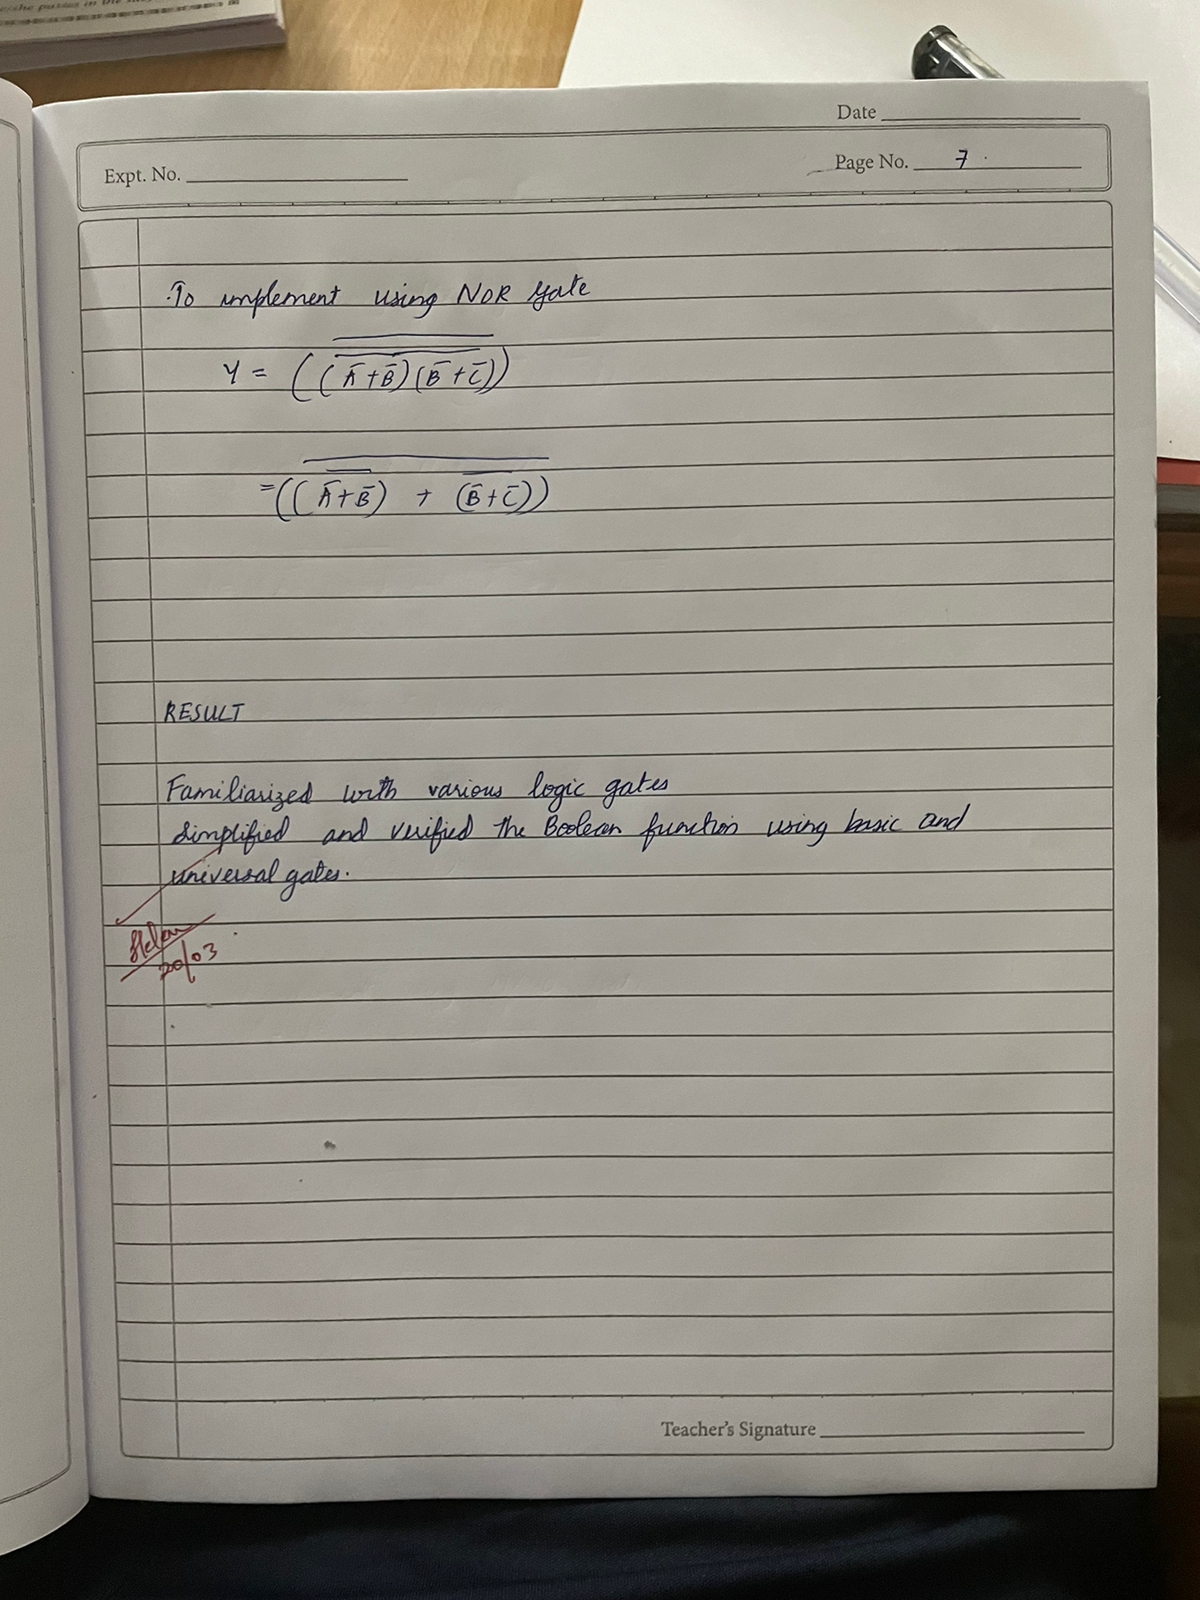 she passes in the
Date
Expt. No.
Page No. 7
To implement using NOR gate
Y = ((A̅+B̅)(B̅+C̅))
=((A̅+B̅) + (B̅+C̅))
RESULT
Familiarized with various logic gates
Simplified and verified the Boolean function using basic and
universal gates.
Helen
20/03
Teacher's Signature